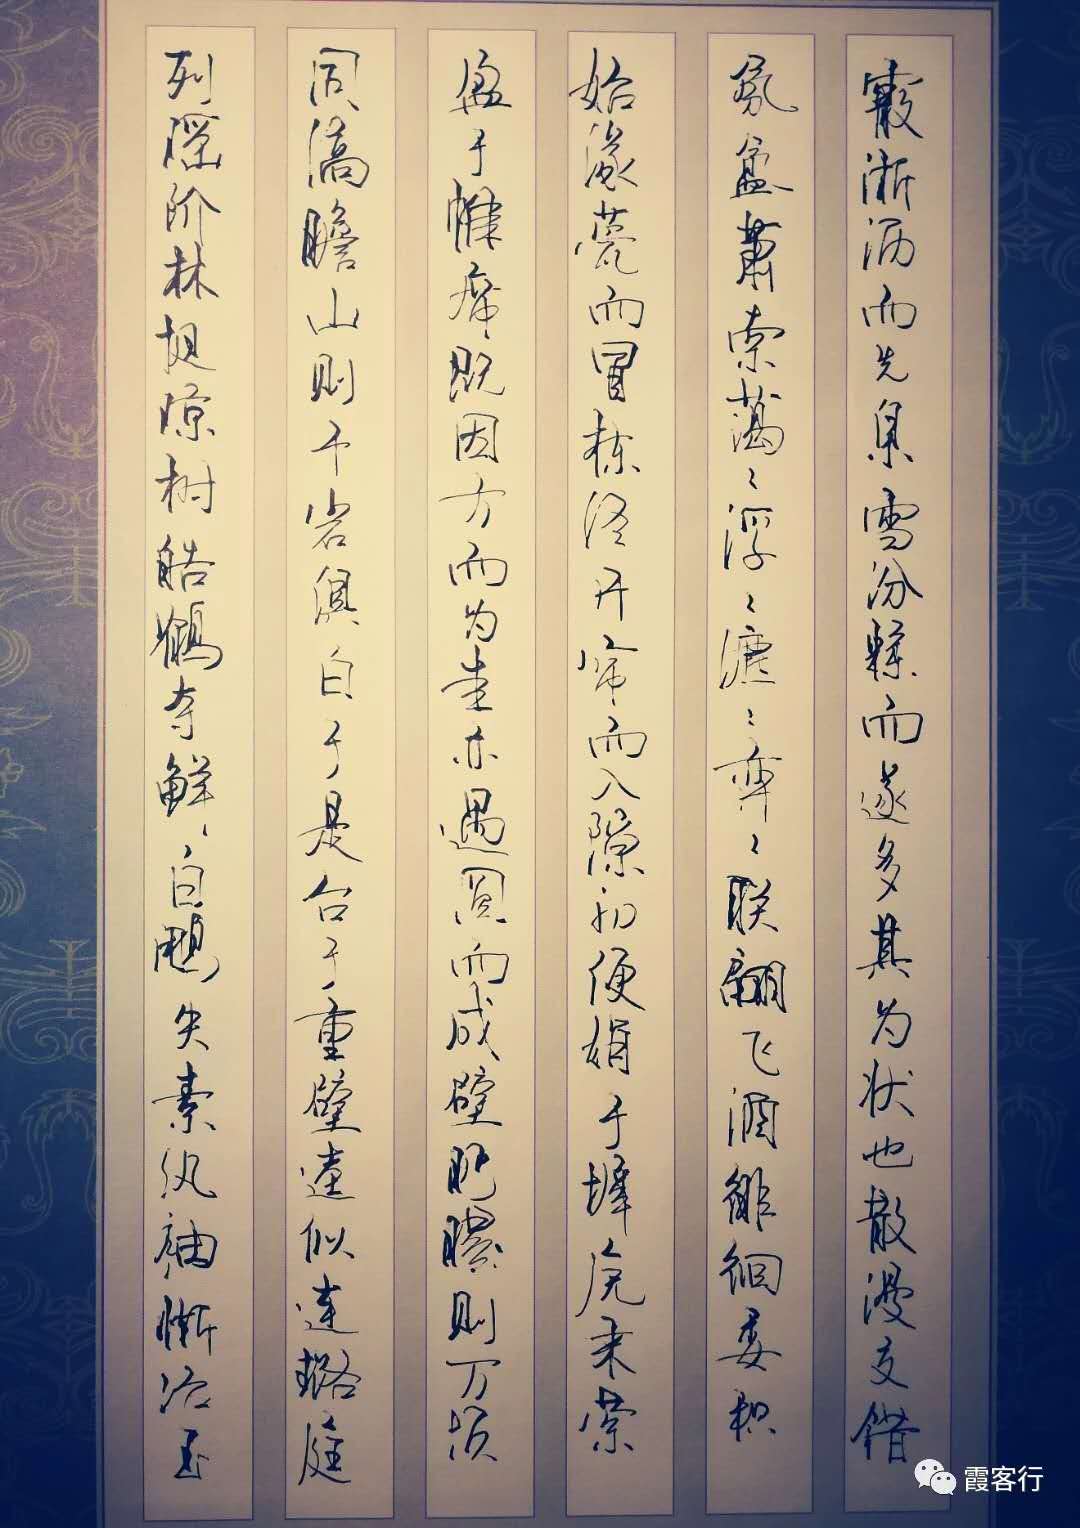 霰淅沥而先集雪纷糅而遂多其为状也散漫交错
氛氲萧索蔼〻浮〻瀌〻弈〻联翩飞洒徘徊委积
始缘甍而冒栋终开帘而入隙初便娟于墀庑末萦
盈于帷席既因方而为圭亦遇圆而成璧眄隰则万顷
同缟瞻山则千岩俱白于是台于重璧逵似连璐庭
列瑶阶林挺琼树皓鹤夺鲜白鹇失素纨袖惭冶玉
霞客行